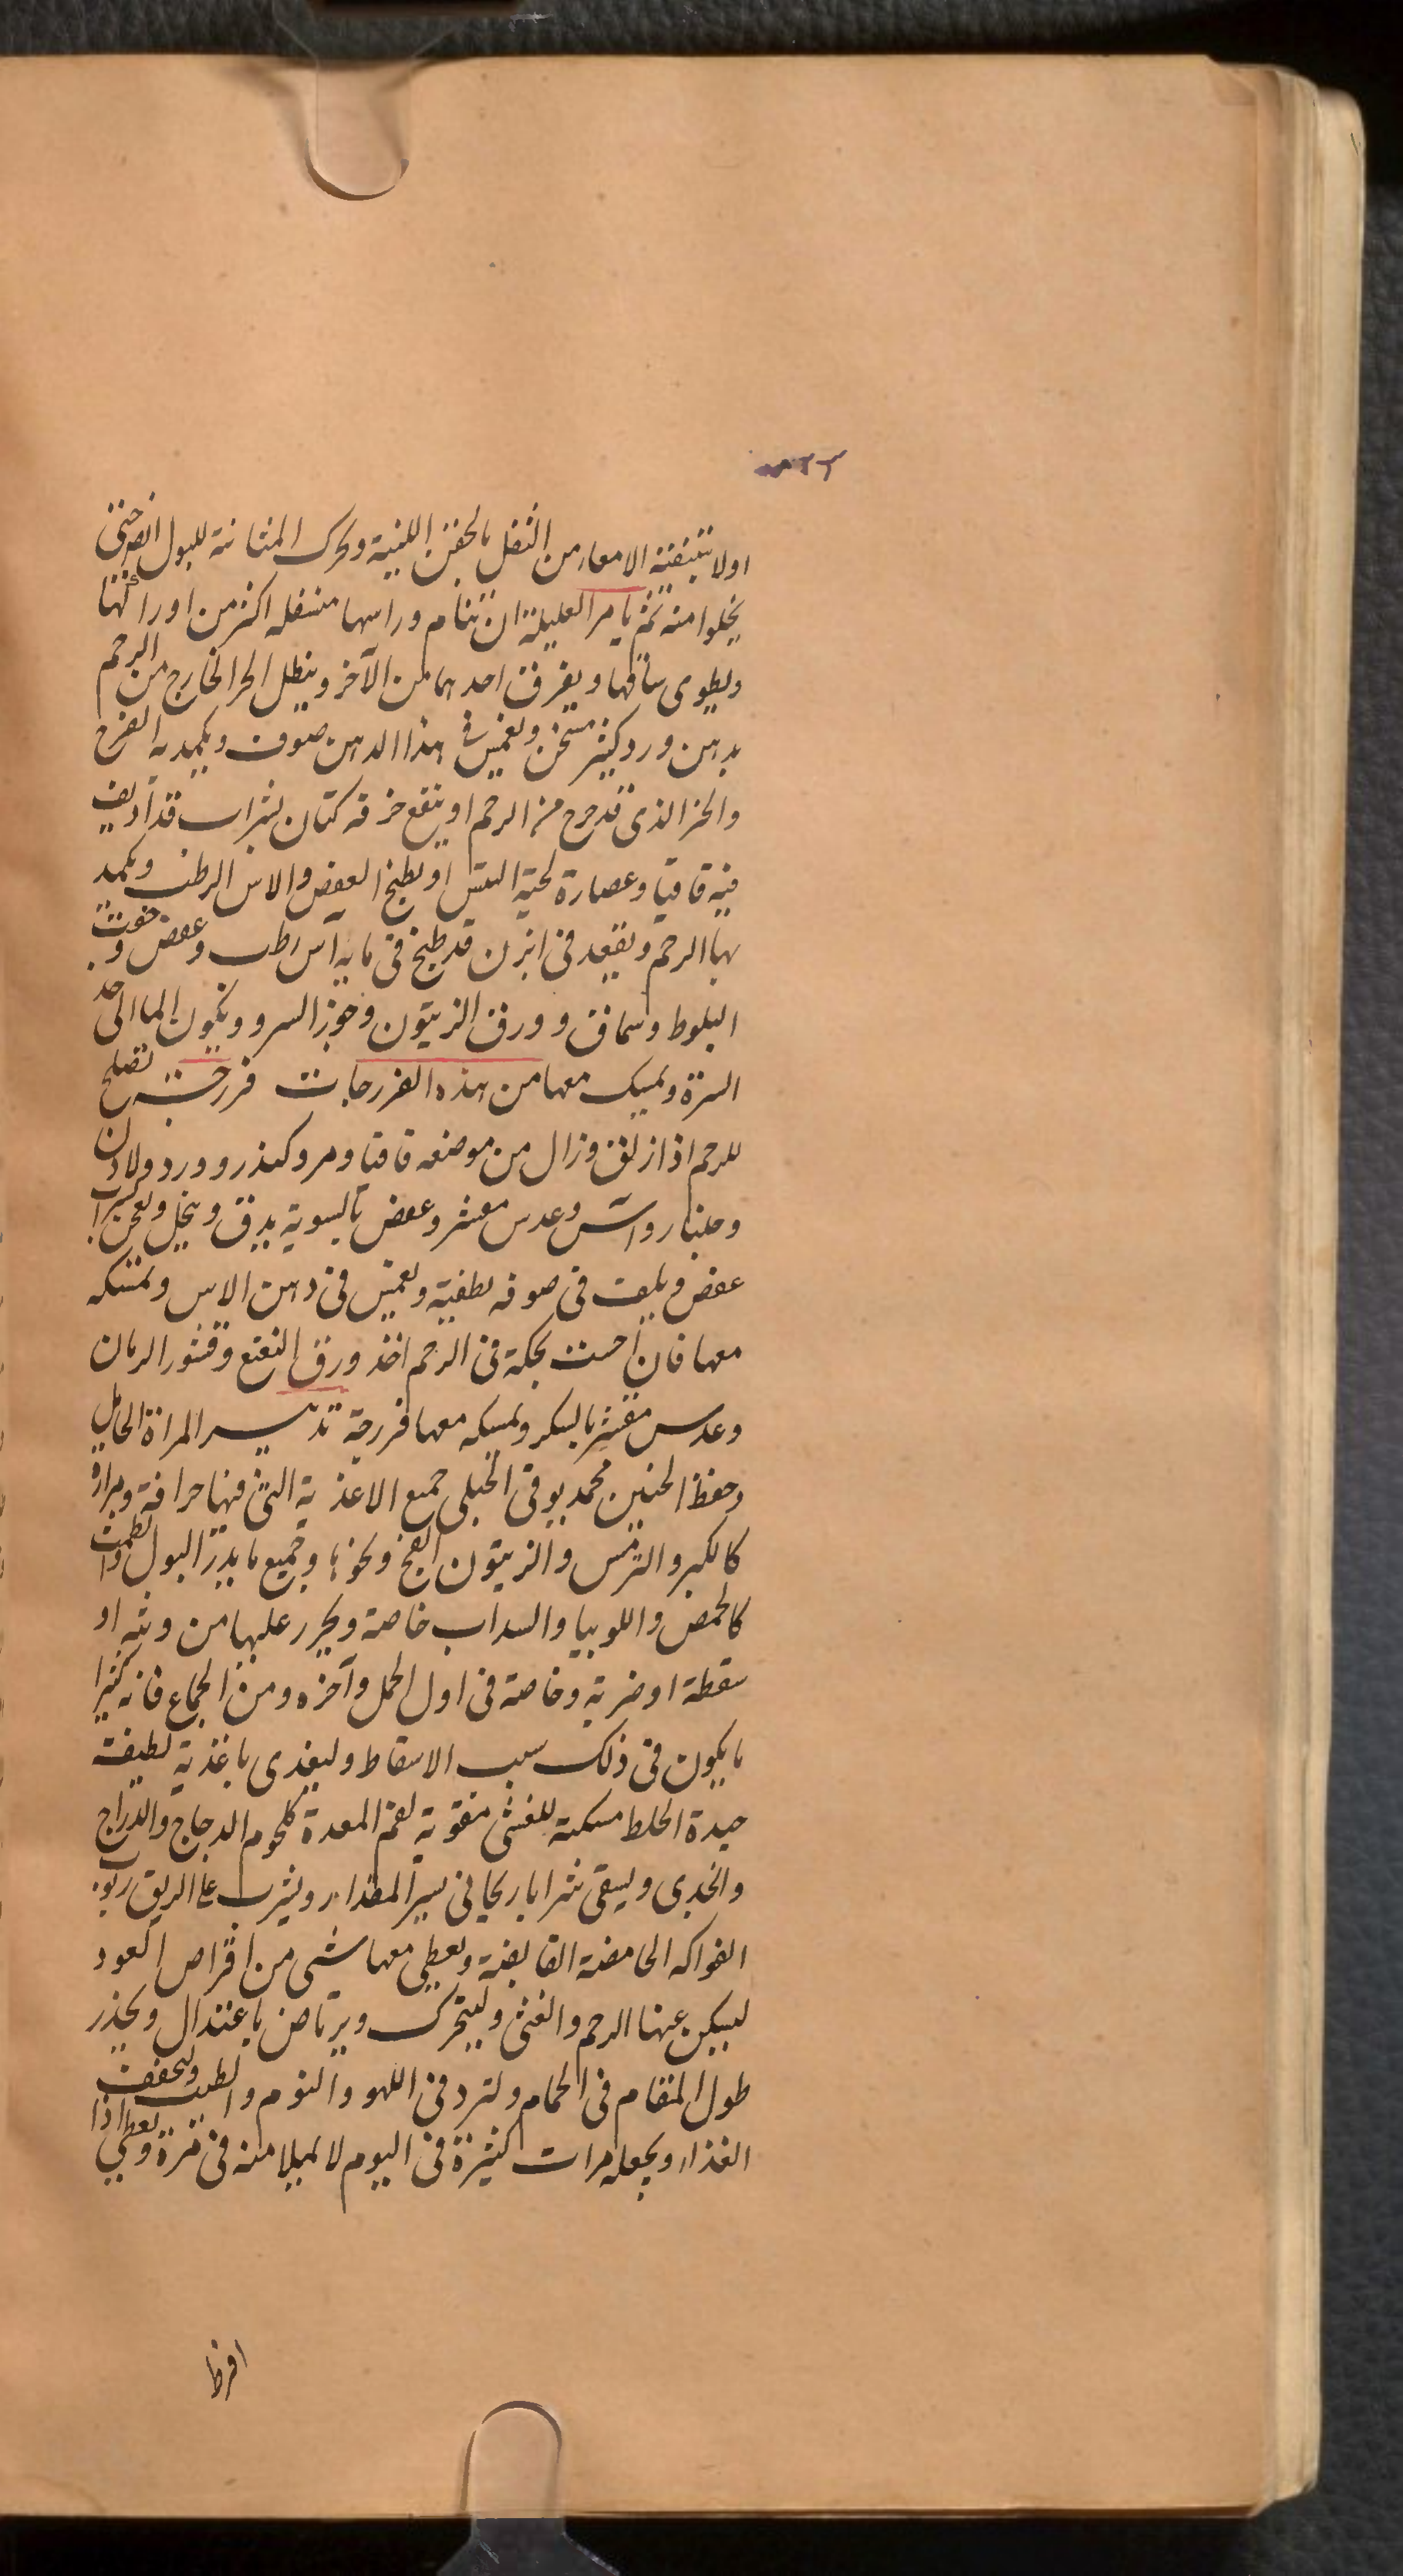 اولا بتنقية الامعاء من الثفل بالحقن اللينة وتحرك المثانة للبول ايضا حتى
يخلوا منه ثم يامر العليلة ان تنام وراسها متسفله اكثر من اوراكها
ويطوى ساقها ويفرق احدهما من الآخر وينطل الجزء الخارج من الرحم
بدهن ورد كثير مسخن ويغمس في هذا الدهن صوف ويكمد به الفرج
والجزء الذى قد خرج من الرحم او ينقع خرقه كتان بشراب قد اديف
فيه قاقيا وعصارة لحية التيس او يطبخ العفص والاس الرطب ويكمد
بها الرحم ويقعد فى ابزن قد طبخ فى مايه آس رطب وعفص وجفت
البلوط وسماق وورق الزيتون وجوز السرو ويكون الما الى حد
السرة ويمسك معها من هذه الفرزجات فرزجت تصلح
للرحم اذا زلق وزال من موضعه قاقيا ومر وكندر وورد ولادن
وجلنار وآس وعدس مقشر وعفص بالسوية يدق وينخل ويعجن بشراب
عفص ويلت فى صوفه لطفية ويغمس فى دهن الاس وتمسكه
معها فان احست بحكة فى الرحم اخذ ورق النعنع وقشور الرمان
وعدس مقشر بالسكر ويمسكه معها فرزجة تدبير المراة الحامل
وحفظ الجنين محمد يوقى الحبلى جميع الاغذية التى فيها حرافة ومرارة
كالكبر والترمس والزيتون الفج ونحوها وجميع ما يدر البول والطمث
كالحمص واللوبيا والسداب خاصة ويحرر عليها من وثبه او
سقطة او ضربة وخاصة فى اول الحمل وآخره ومن الجماع فانه كثيرا
ما يكون فى ذلك سبب الاسقاط وليغذى باغذية لطيفة
جيدة الخلط مسكنة للغشى مقوية لفم المعدة كلحوم الدجاج والدراج
والجدى ويسقى شرابا ريحانى يسير المقدار ويشرب على الريق ربوب
الفواكه الحامضة القابضة ويعطى معها شى من اقراص العود
ليسكن عنها الرحم والغثى وليتحرك ويرتاض باعتدال ويحذر
طول المقام فى الحمام ولتزد فى اللهو والنوم والطيب وليخفف
الغذاء ويجعله مرات كثيرة فى اليوم لا يميلا منه فى مرة ويعطى اذا
افرط